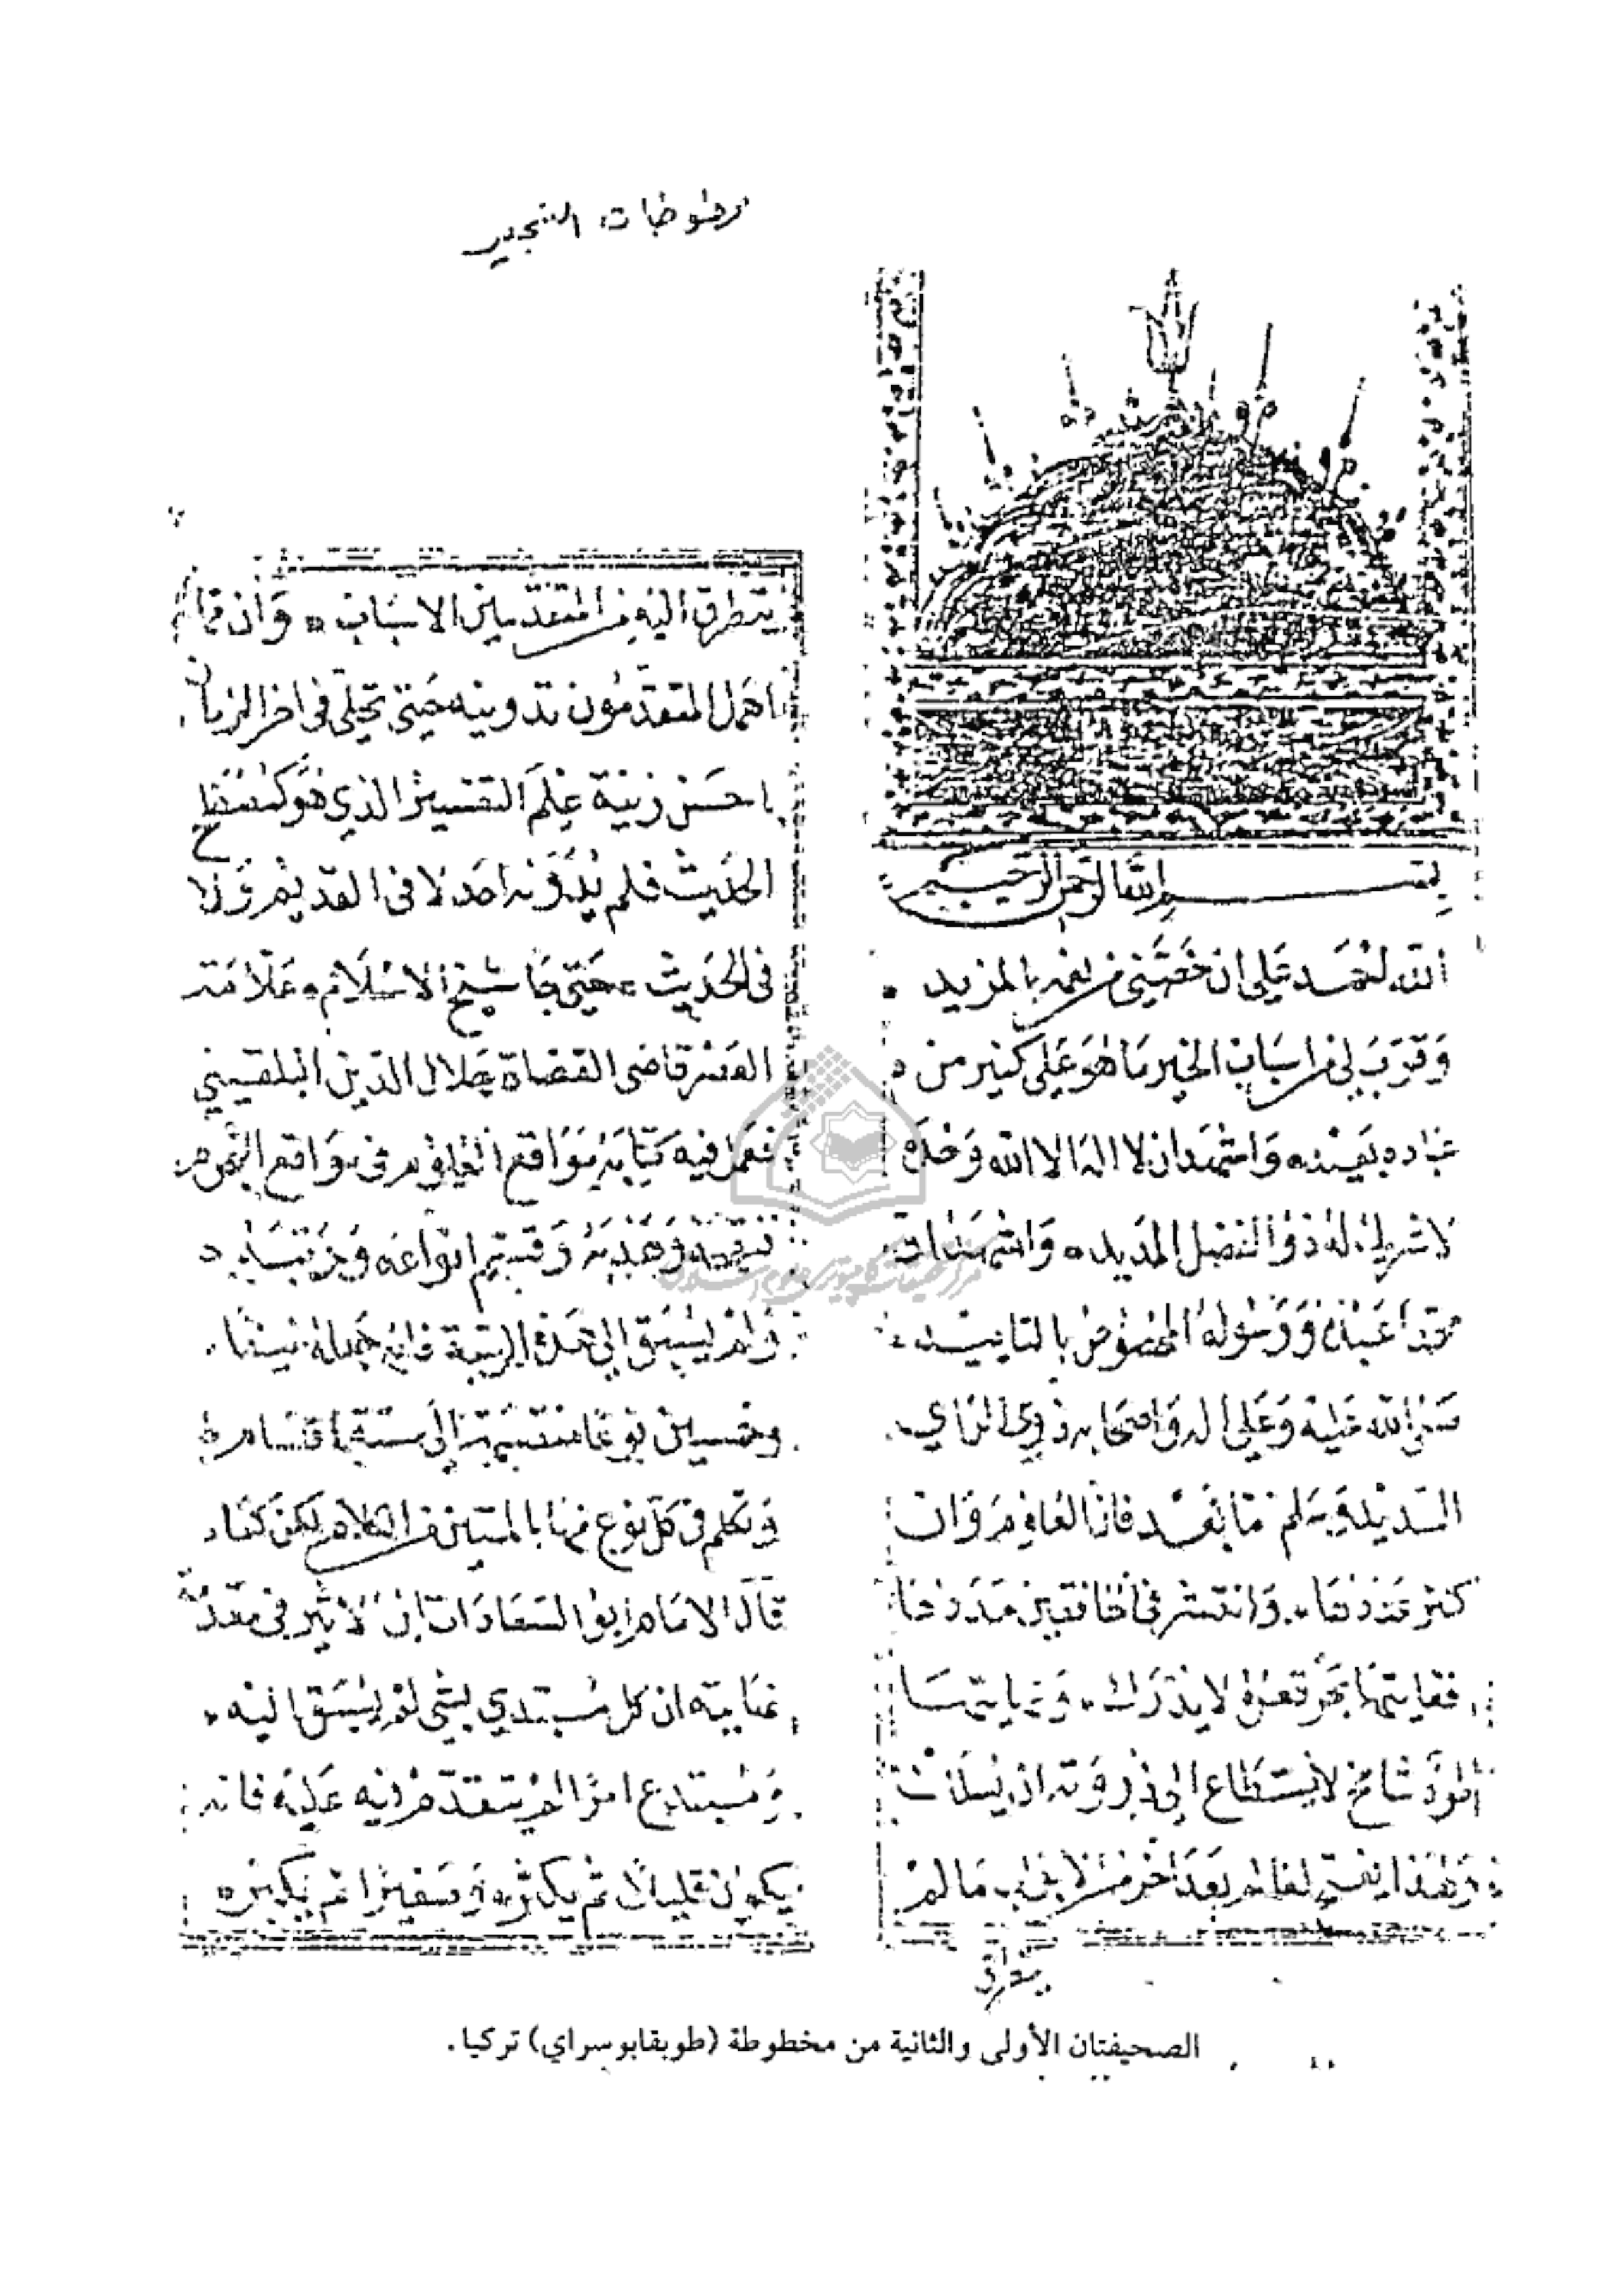 مخطوطات التحبير
بسم الله الرحمن الرحيم
الله احمد على ان خصني من نعمه بالمزيد
وقرب لي من اسباب الخير ما هو على كثير من
عباده بعيد واشهد ان لا اله الا الله وحده
لا شريك له ذو الفضل المديد واشهد ان
محمدا عبده ورسوله المخصوص بالتاييد
صلى الله عليه وعلى اله واصحابه ذوي الراي
السديد وسلم ما بعد فان العلوم وان
كثر عددها وانتشر في الخافقين مددها
فغايتها بحر قعره لا يدرك ونهايتها
طود شامخ لا يستطاع الى ذروته ان يسلك
ولهذا يفتح لعالم بعد اخر من الابواب ما لم
يتطرق
يتطرق اليه من المتقدمين الاسباب وان مما
اهمل المتقدمون تدوينه حتى تحلى في اخر الزمان
باحسن زينة علم التفسير الذي هو كمصطلح
الحديث فلم يدونه احد لا في القديم ولا
في الحديث حتى جا شيخ الاسلام وعلامة
العصر قاضى القضاة جلال الدين البلقيني
فعمل فيه كتابه مواقع العلوم في مواقع النجوم
فنقحه وهذبه وقسم انواعه ورتبه
ولم يسبق الى هذه الرتبة فانه جعله نيفا
وخمسين نوعا منقسمة الى ستة اقسام
وتكلم في كل نوع منها بالمتين من الكلام لكن كما
قال الامام ابو السعادات ابن الاثير في مقدمة
نهايته ان كل مبتدي بشي لم يسبق اليه
ومبتدع امرا لم يتقدم فيه عليه فانه
يكون قليلا ثم يكثر وصغيرا ثم يكبر
الصحيفتان الأولى والثانية من مخطوطة (طوبقابوسراي) تركيا.